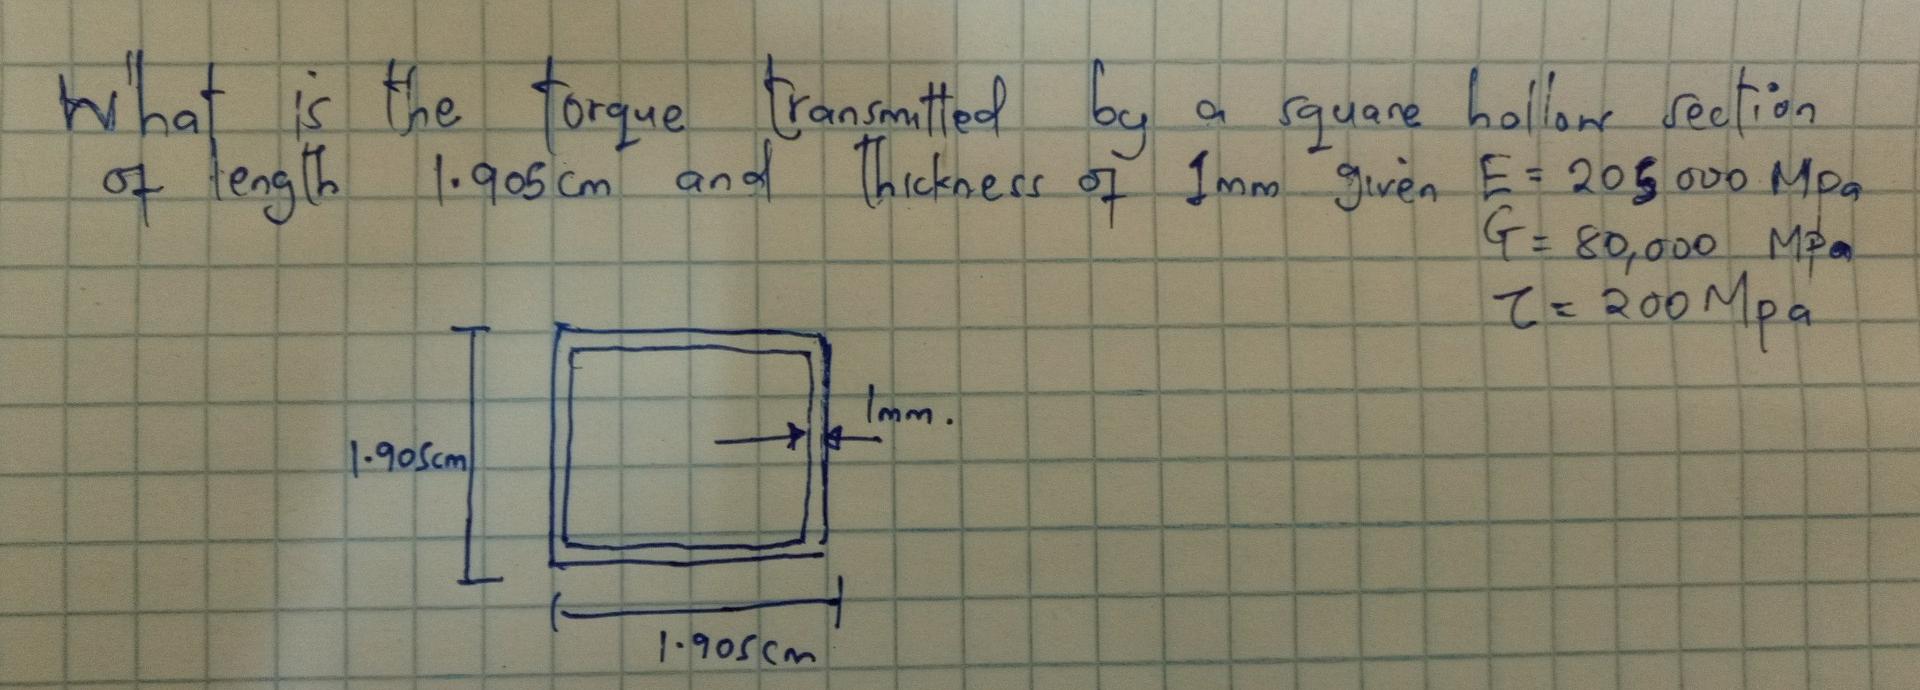 What is the torque transmitted by a square hollow section
of length 1.905cm and thickness of 1mm given E = 205 000 MPa
G = 80,000 MPa
τ = 200 Mpa
1mm.
1.905cm
1.905cm